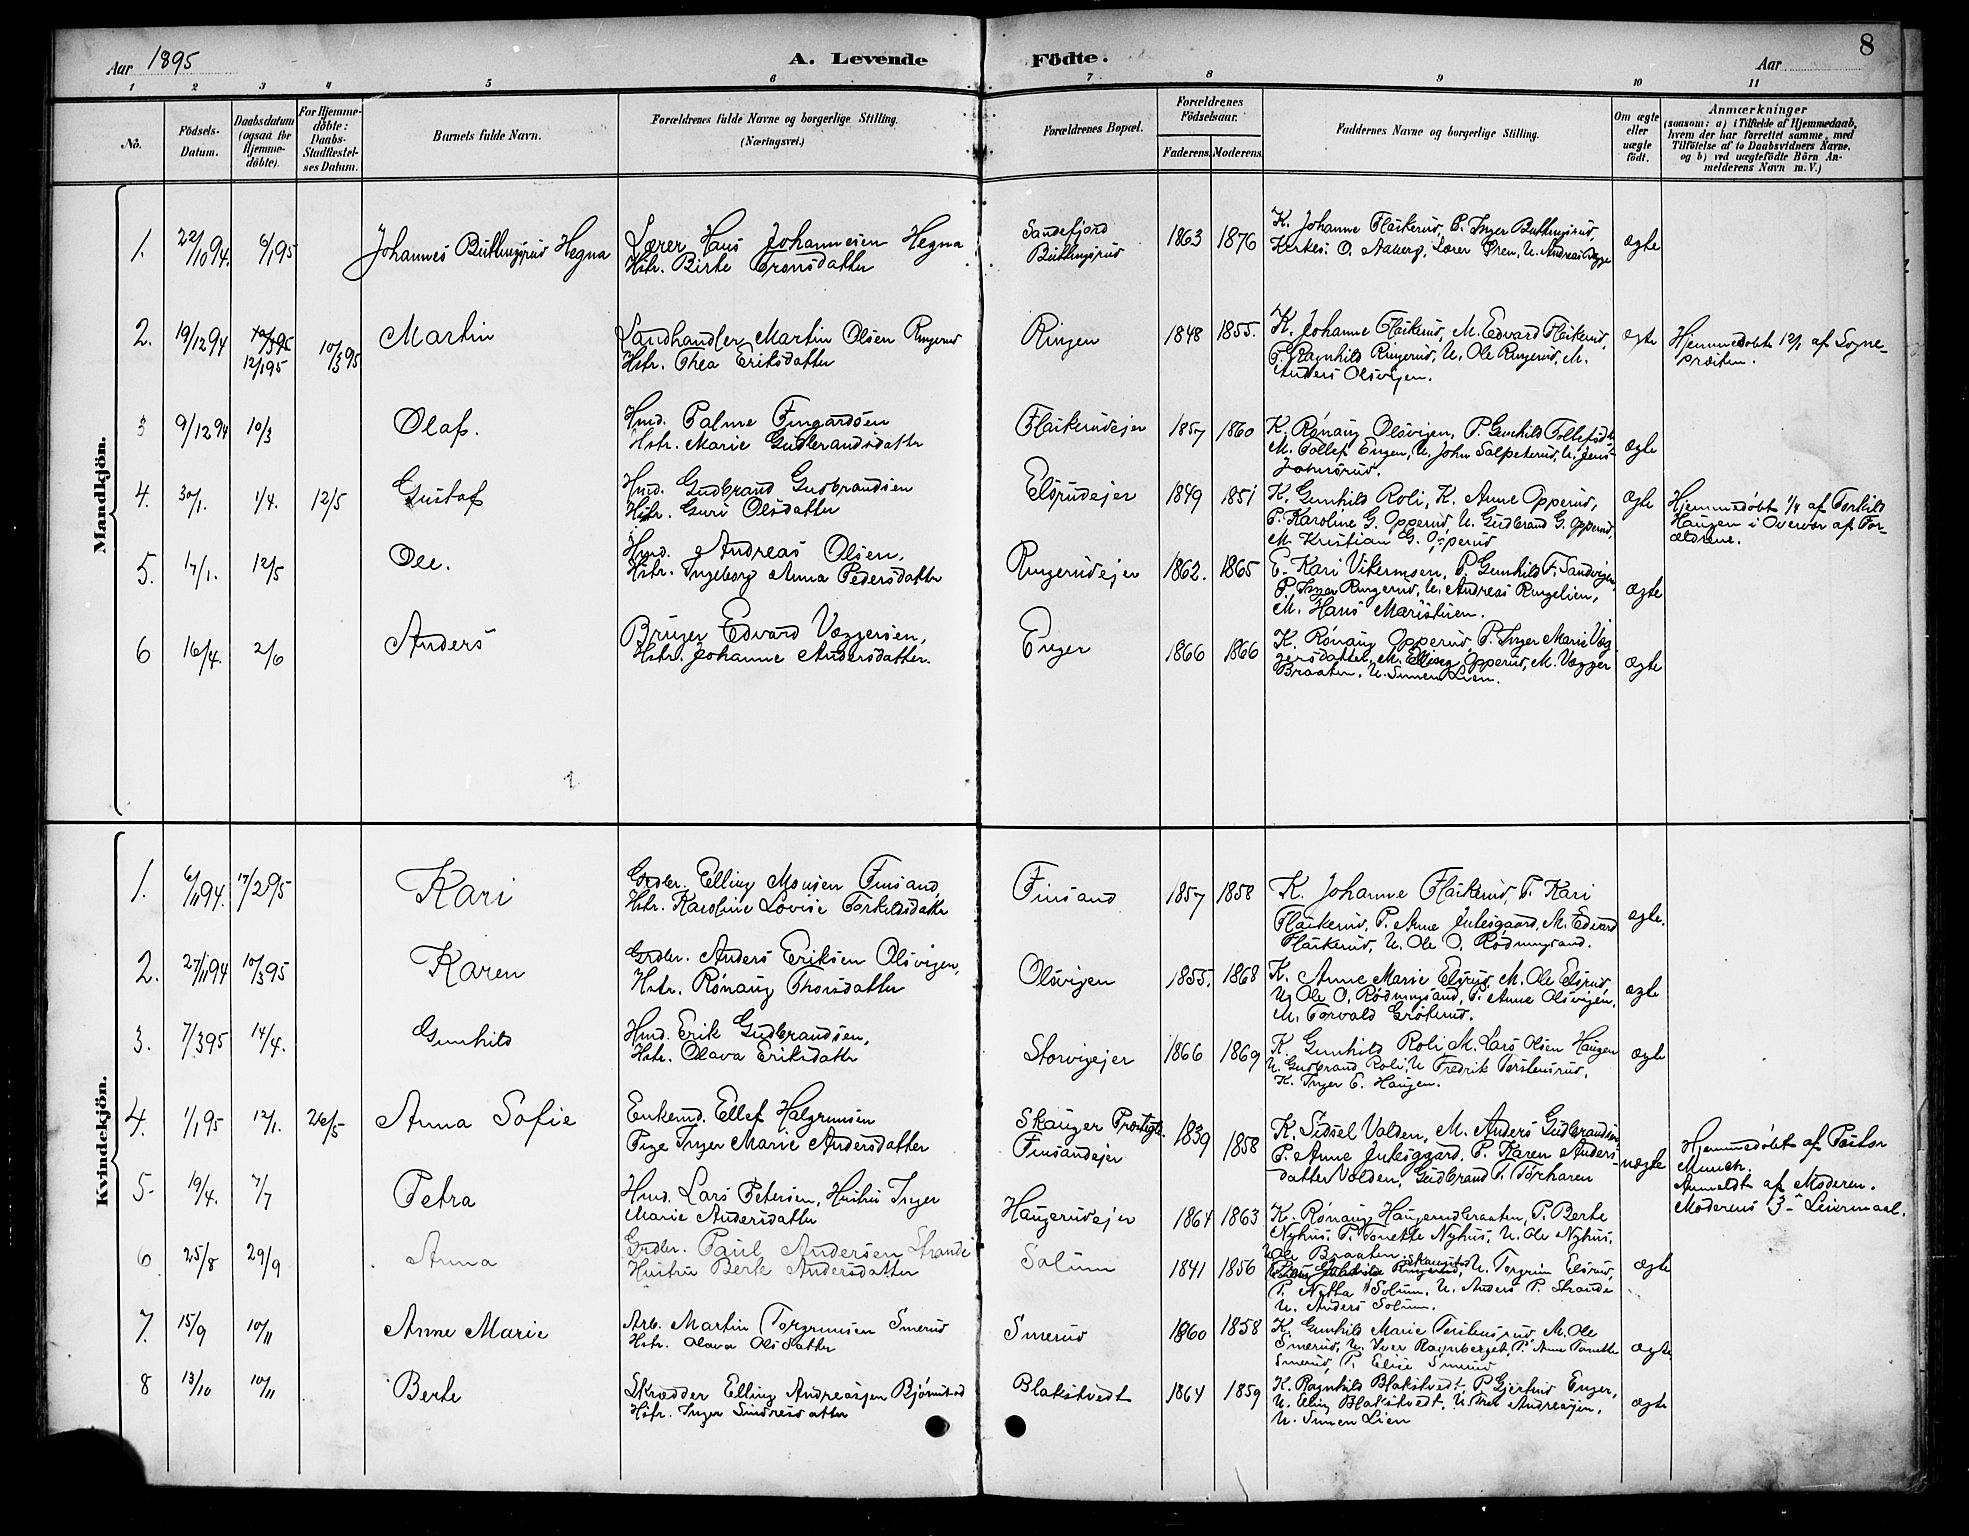 Aar 1895
A. Levende Födte.
8
Aar
1 2 3 4 5 6 7 8 9 10 11
No.
Födsels-Datum.
Daabsdatum (ogsaa for Hjemme-döbte).
For Hjemme-döbte: Daabs-Stadfæstel-ses Datum.
Barnets fulde Navn.
Forældrenes fulde Navne og borgerlige Stilling. (Næringsvei.)
Forældrenes Bopæl.
Forældrenes Födselsaar.
Faderens. Moderens.
Faddernes Navne og borgerlige Stilling.
Om ægte eller uægte födt.
Anmærkninger
(saasom: a) i Tilfælde af Hjemmedaab,
hvem der har forrettet samme, med
Tilföielse af to Daabsvidners Navne,
og b) ved uægtefödte Börn An-
melderens Navn m. V.)
Mandkjön.
1. 22/10 94. 6/1 95 Johannes Buttingsrud Hegna
Lærer Hans Johannesen Hegna
Hstr. Birte Tronsdatter
Sandefjord
Buttingsrud
1863 1876
K. Johanne Flaskerud, P. Inger Buttingsrud,
Kirkes. O. Aaberg, Lærer Øren, U. Andreas
ægte
2. 19/12 94 10/3 95 12/1 95 10/3 95 Martin
Landhandler Martin Olsen Ringerud
Hstr. Thea Eriksdatter
Ringen 1848 1855.
K. Johanne Flaskerud, M. Edvard Flaskerud,
P. Ragnhild Ringerud, U. Ole Ringerud, M.
Anders Olsvigen.
ægte
Hjemmedøbt 12/1 af Sogne-
præsten.
3 9/12 94 10/3 Olaf.
Hmd. Palme Fingardsen
Hstr. Marie Gudbrandsdatter
Flaskerudejer 1857 1860
K. Rønaug Olsvigen, P. Gunhild Tollefsdtr.
M. Tollef Engen, U. John Salpeterud, U. Jens
ægte
4. 30/1. 1/4. 12/5 Gustaf
Hmd. Gudbrand Gudbrandsen
Hstr. Guri Olsdatter
Elsrudejer 1849 1851
K. Gunhild Roli, K. Anne Opperud,
P. Karoline G. Opperud, U. Gudbrand G. Opperud,
M. Kristian G. Opperud
ægte
Hjemmedøbt 1/4 af Torkild
Haugen i Overvær af For-
ældrene.
5. 17/1. 12/5 Ole.
Hmd. Andreas Olsen,
Hstr. Ingeborg Anna Pedersdatter
Ringerudejer 1862. 1865
E. Kari Vikermoen, P. Gunhild F. Sandvigen,
P. Inger Ringerud, U. Andreas Ringelien,
M. Hans Maristuen.
ægte
6 16/4. 2/6 Anders
Bruger Edvard Væggersen,
Hstr. Johanne Andersdatter.
Enger 1866 1866
K. Rønaug Opperud, P. Inger Marie Væg
gersdatter, M. Elling Opperud, M. Vægger
Braaten, U. Simen Lien.
ægte
Kvindekjön.
1. 6/11 94. 17/2 95 Kari
Grdbr. Elling Monsen Finsand,
Hstr. Karoline Lovise Torkildsdatter
Finsand 1857 1858
K. Johanne Flaskerud, P. Kari
Flaskerud, P. Anne Julesgaard, M. Edvard
Flaskerud, U. Ole O. Rødningsand.
ægte.
2. 27/11 94 10/3 95 Karen
Grdbr. Anders Eriksen Olsvigen,
Hstr. Rønaug Thorsdatter
Olsvigen 1855. 1868
K. Anne Marie Elsrud, M. Ole Elsrud,
U. Ole O. Rødningsand, P. Anne Olsvigen,
M. Torvald Grøterud.
ægte
3. 7/3 95 14/4. Gunhild
Hmd. Erik Gudbrandsen,
Hstr. Olava Eriksdatter
Storvigejer 1866 1869
K. Gunhild Roli, M. Lars Olsen Haugen
U. Gudbrand Roli, U. Fredrik Torstensrud,
K. Inger E. Haugen.
ægte
4. 1/1 95 12/1. 26/5 Anna Sofie
Enkemd. Ellef Halgrimsen
Pige Inger Marie Andersdatter
Skauger Præstgd.
Finsandejer
1839 1858
K. Sidsel Valden, M. Anders Gudbrandsen,
P. Anne Julesgaard, P. Karen Anders-
datter Valden, Gudbrand T. Torharen
uægte
Hjemmedøbt af Pastor
Munch.
Anmeldt af Moderen.
Moderens 3die Leiermaal.
5. 19/4. 7/7 Petra
Hmd. Lars Petersen, Hustru Inger
Marie Andersdatter
Haugerudejer 1864 1863
K. Rønaug Haugerudbraaten, P. Berte
Nyhus, P. Tonette Nyhus, U. Ole Nyhus,
Ole Braaten
6 25/8 29/9 Anna
Grdbr. Paul Andersen Strande
Hustru Berte Andersdatter
Solum 1841 1856
Ringerud, U. Torgrim Elsrud,
P. Netta Solum, U. Anders P. Strande
U. Anders Solum.
ægte
7. 15/9 10/11 Anne Marie
Arb. Martin Torgrimsen Smerud
Hstr. Olava Olsdatter
Smerud 1860 1858
K. Gunhild Marie Torstensrud, M. Ole
Smerud, U. Iver Ravnberget, P. Anne Tonette
Smerud, P. Elise Smerud
ægte
8 13/10 10/11 Berte
Skrædder Elling Andreassen Bjørnstad
Hstr. Inger Sindresdatter
Blakstvedt 1864 1859
K. Ragnhild Blakstvedt, P. Gjertrud Enger,
U. Elling Blakstvedt, U. Andreassen,
U. Simen Lien
ægte